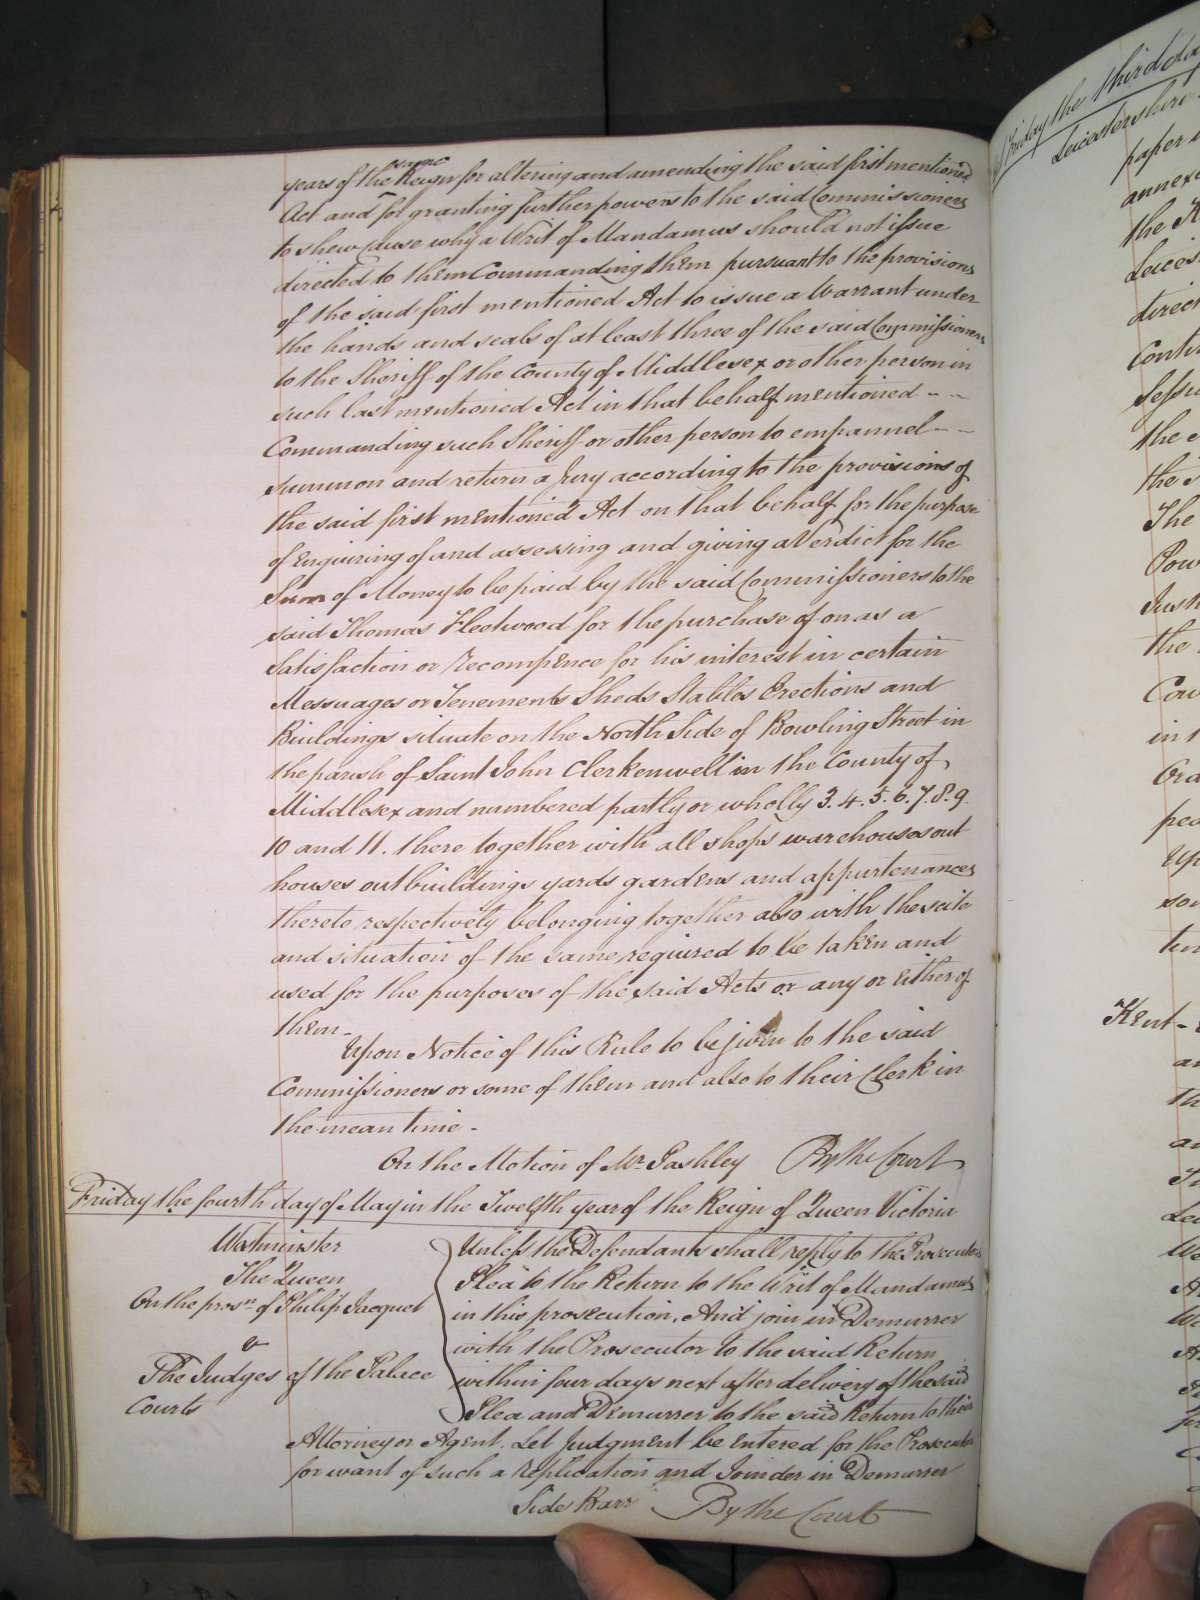 years of the same Reign for altering and amending the said first mentioned
Act and for granting further powers to the said Commissioners
to shew Cause why a Writ of Mandamus should not issue
directed to them Commanding them pursuant to the provisions
of the said first mentioned Act to issue a Warrant under
the hands and seals of at least three of the said Commissioners
to the Sheriff of the County of Middlesex or other person in
such last mentioned Act in that behalf mentioned - -
Commanding such Sheriff or other person to empannel - -
summon and return a Jury according to the provisions of
the said first mentioned Act on that behalf for the purpose
of Enquiring of and assessing and giving a Verdict for the
Sum of Money to be paid by the said Commissioners to the
said Thomas Fleetwood for the purchase of or as a
Satisfaction or Recompence for his interest in certain
Messuages or Tenements Sheds Stables Erections and
Buildings situate on the North Side of Bowling Street in
the parish of Saint John Clerkenwell in the County of
Middlesex and numbered partly or wholly 3. 4. 5. 6. 7. 8. 9.
10 and 11. there together with all shops warehouses out
houses outbuildings yards gardens and appurtenances
thereto respectively belonging together also with the scite
and situation of the same required to be taken and
used for the purposes of the said Acts or any or Either of
them -
Upon Notice of this Rule to be given to the said
Commissioners or some of them and also to their Clerk in
the mean time -
On the Motion of Mr. Pashley By the Court
Friday the fourth day of May in the Twelfth year of the Reign of Queen Victoria
Westminster
The Queen
On the prosn. of Philip Jacquet
v
The Judges of the Palace
Courts
Unless the Defendants shall reply to the Prosecutors
Plea to the Return to the Writ of Mandamus
in this prosecution, And join in Demurrer
with the Prosecutor to the said Return
within four days next after delivery of the said
Plea and Demurrer to the said Return to their
Attorney or Agent. Let Judgment be Entered for the Prosecutor
for want of such a Replication and Joinder in Demurrer
Side Barr By the Court
Friday the third da
Leicestershire
paper
annexe
the K
Leices
direct
Contin
Sessio
the
the
The
Pow
Just
the
Cou
in t
Ora
pea
Upo
son
Kent -
an
th